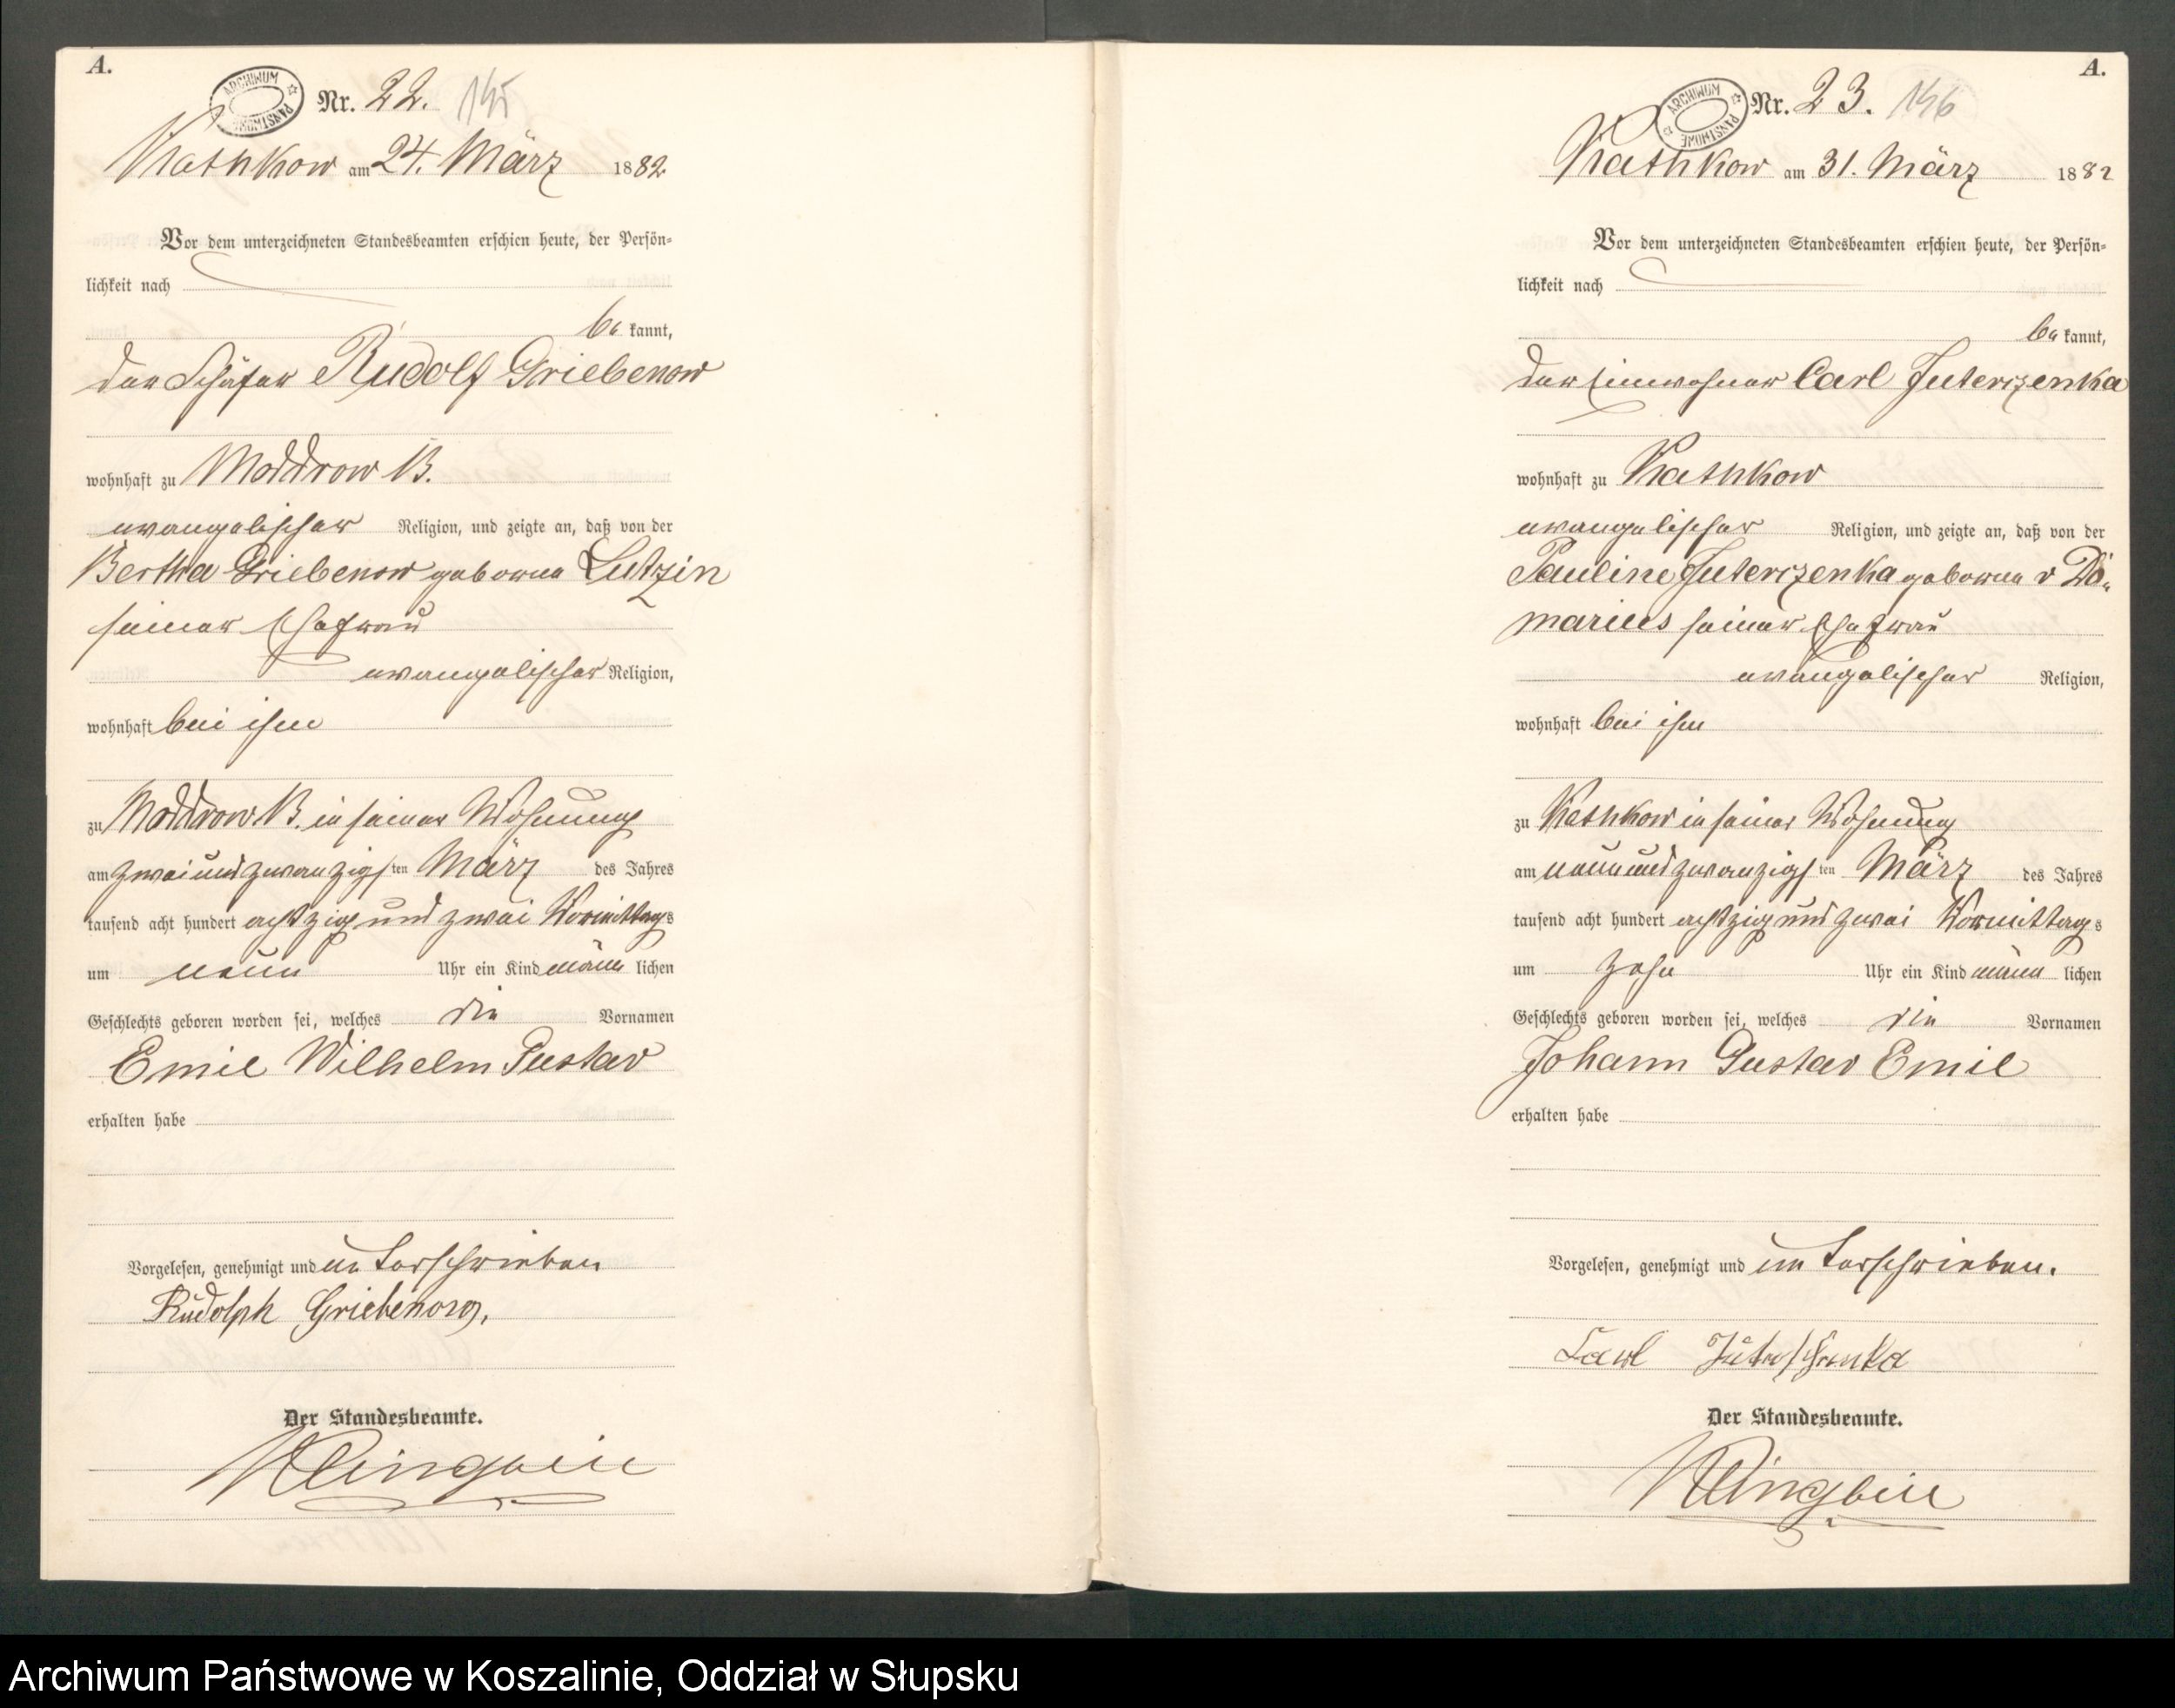 A.
ARCHIWUM PAŃSTWOWE
Nr. 22. 145
Rathkow am 24. März 1882
Vor dem unterzeichneten Standesbeamten erschien heute, der Persön=
lichkeit nach
be kannt,
der Schäfer Rudolf Griebenow
wohnhaft zu Moddrow B.
evangelischer Religion, und zeigte an, daß von der
Bertha Griebenow geborne Lutzin
seiner Ehefrau
evangelischer Religion,
wohnhaft bei ihm
zu Moddrow B. in seiner Wohnung
am zwei und zwanzigs ten März des Jahres
tausend acht hundert achtzig und zwei Vormittags
um neun Uhr ein Kind männ lichen
Geschlechts geboren worden sei, welches die Vornamen
Emil Wilhelm Gustav
erhalten habe
Vorgelesen, genehmigt und unterschrieben
Rudolph Griebenow,
Der Standesbeamte.
Klingbeil
A.
ARCHIWUM PAŃSTWOWE
Nr. 23. 146
Rathkow am 31. März 1882
Vor dem unterzeichneten Standesbeamten erschien heute, der Persön=
lichkeit nach
be kannt,
der Einwohner Carl Juterczenka
wohnhaft zu Rathkow
evangelischer Religion, und zeigte an, daß von der
Pauline Juterczenka geborne v Dö=
marcus seiner Ehefrau
evangelischer Religion,
wohnhaft bei ihm
zu Rathkow in seiner Wohnung
am neun und zwanzigs ten März des Jahres
tausend acht hundert achtzig und zwei Vormittags
um zehn Uhr ein Kind männ lichen
Geschlechts geboren worden sei, welches die Vornamen
Johann Gustav Emil
erhalten habe
Vorgelesen, genehmigt und unterschrieben.
Carl
Der Standesbeamte.
Klingbeil
Archiwum Państwowe w Koszalinie, Oddział w Słupsku